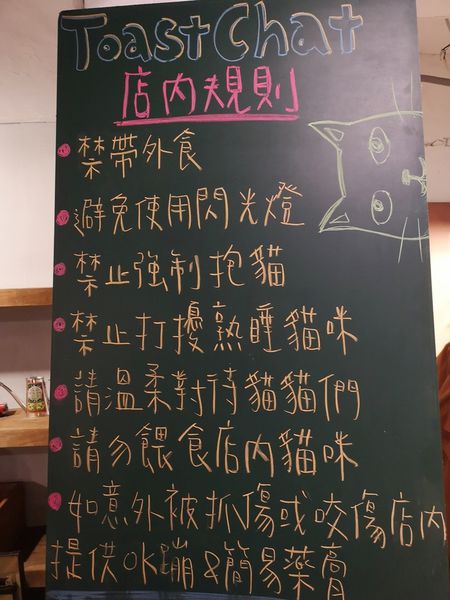 Toast Chat
店內規則
禁帶外食
避免使用閃光燈
禁止強制抱貓
禁止打擾熟睡貓咪
請溫柔對待貓貓們
請勿餵食店內貓咪
如意外被抓傷或咬傷店內
提供OK蹦&簡易藥膏